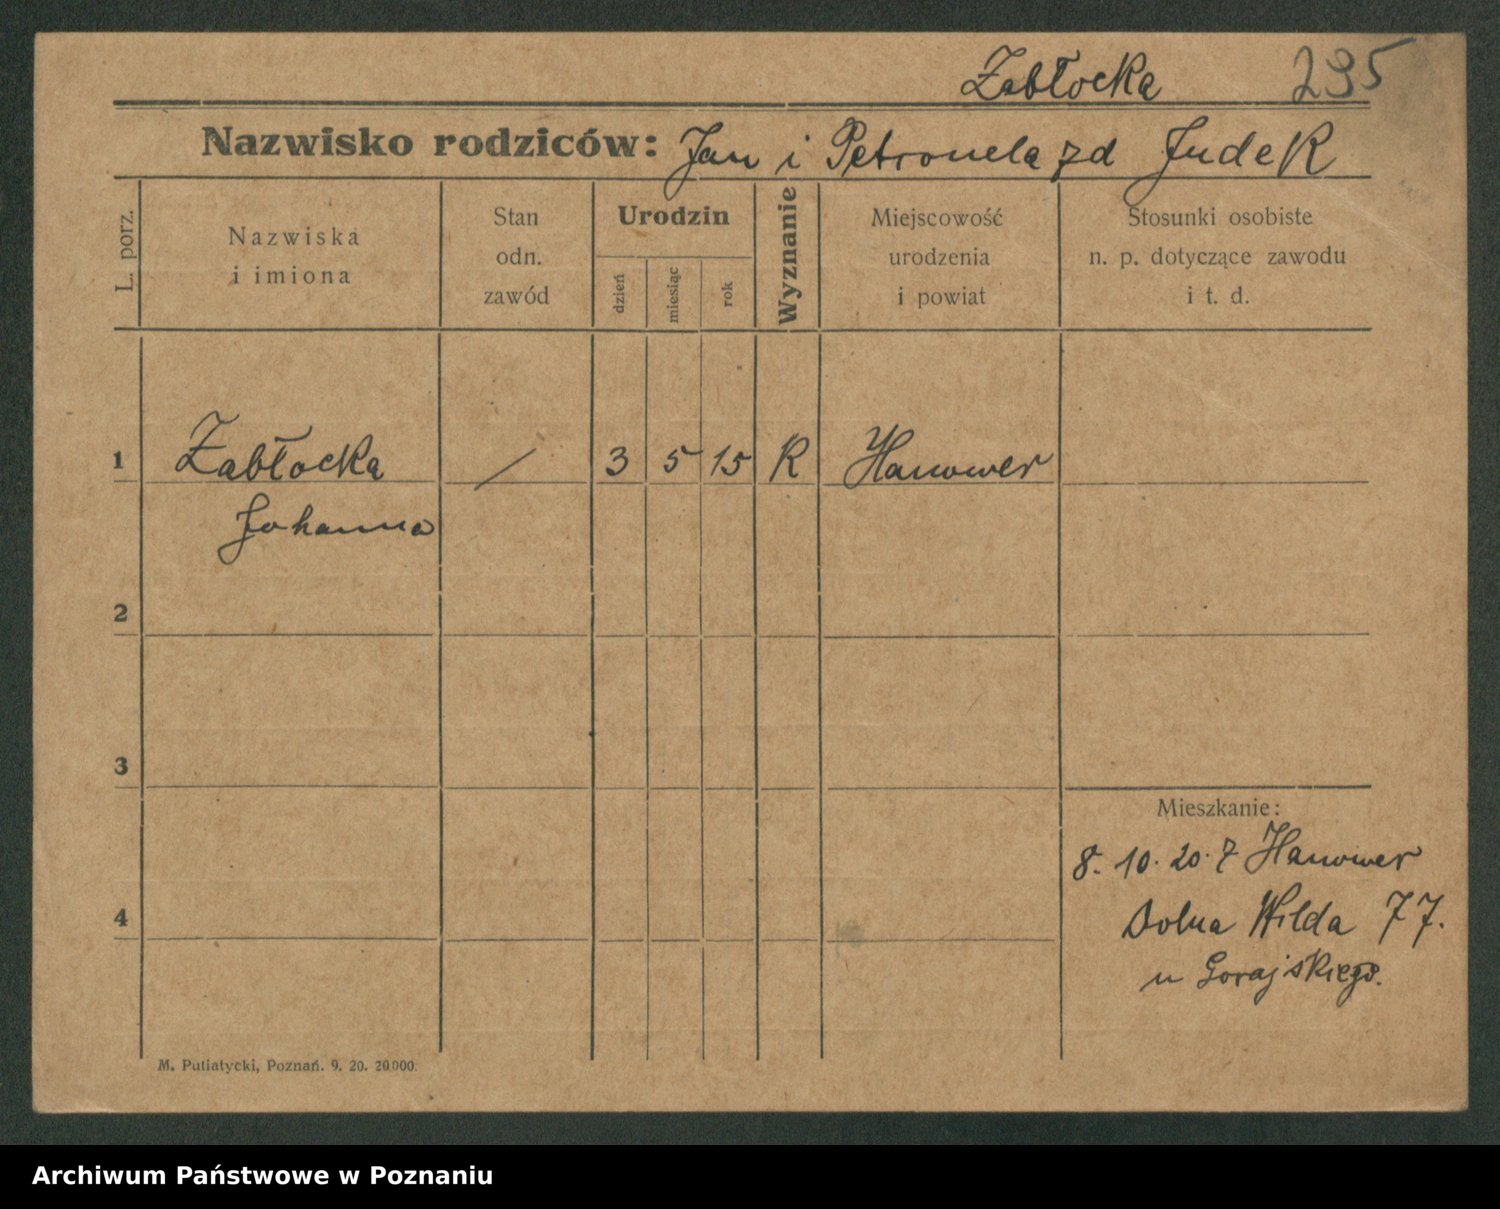 Zabłocka 295
Nazwisko rodziców: Jan i Petronela zd Judek
L. porz.
Nazwiska
i imiona
Stan
odn.
zawód
Urodzin
dzień
miesiąc
rok
Wyznanie
Miejscowość
urodzenia
i powiat
Stosunki osobiste
n. p. dotyczące zawodu
i t. d.
1 Zabłocka / 3 5 15 R Hanower
Johanna
2
3
Mieszkanie:
8. 10. 20. z Hanower
4 Dolna Wilda 77.
u Gorajskiego.
M. Putiatycki, Poznań. 9. 20. 20000.
Archiwum Państwowe w Poznaniu